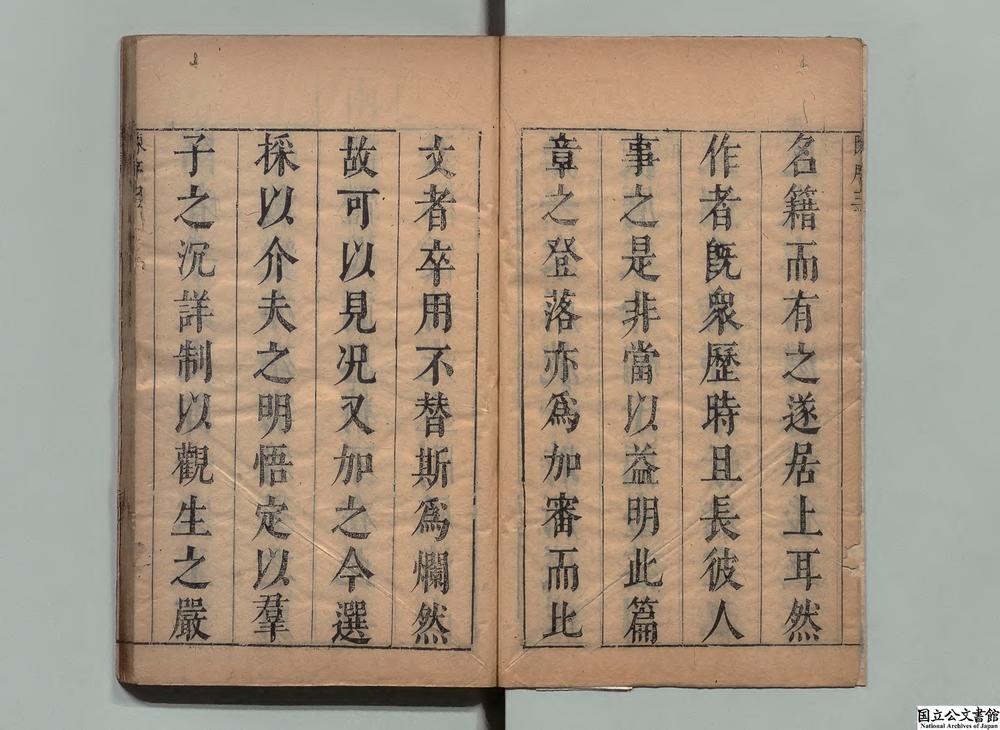 名籍而有之遂居上耳然
作者旣衆歷時且長彼人
事之是非當以益明此篇
章之登落亦爲加審而比
文者卒用不替斯爲爛然
故可以見况又加之今選
採以介夫之明悟定以羣
子之沉詳制以觀生之嚴
国立公文書館
National Archives of Japan